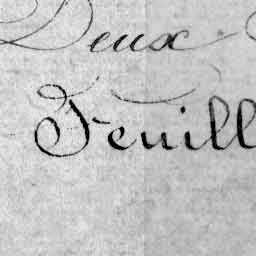 Deux
Feuill